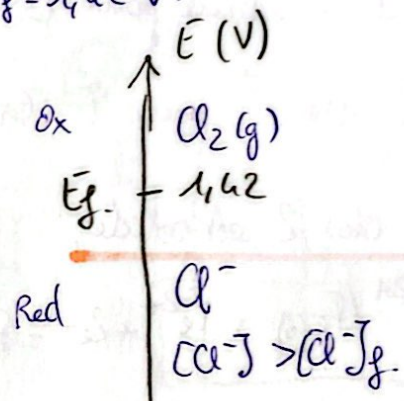 E (V)
Ox Cl₂ (g)
Ef. 1,42
Cl⁻
Red
[Cl⁻] > [Cl⁻]f.